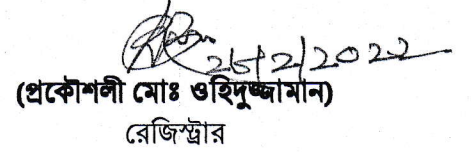 25/2/2022
(প্রকৌশলী মোঃ ওহিদুজ্জামান)
রেজিস্ট্রার